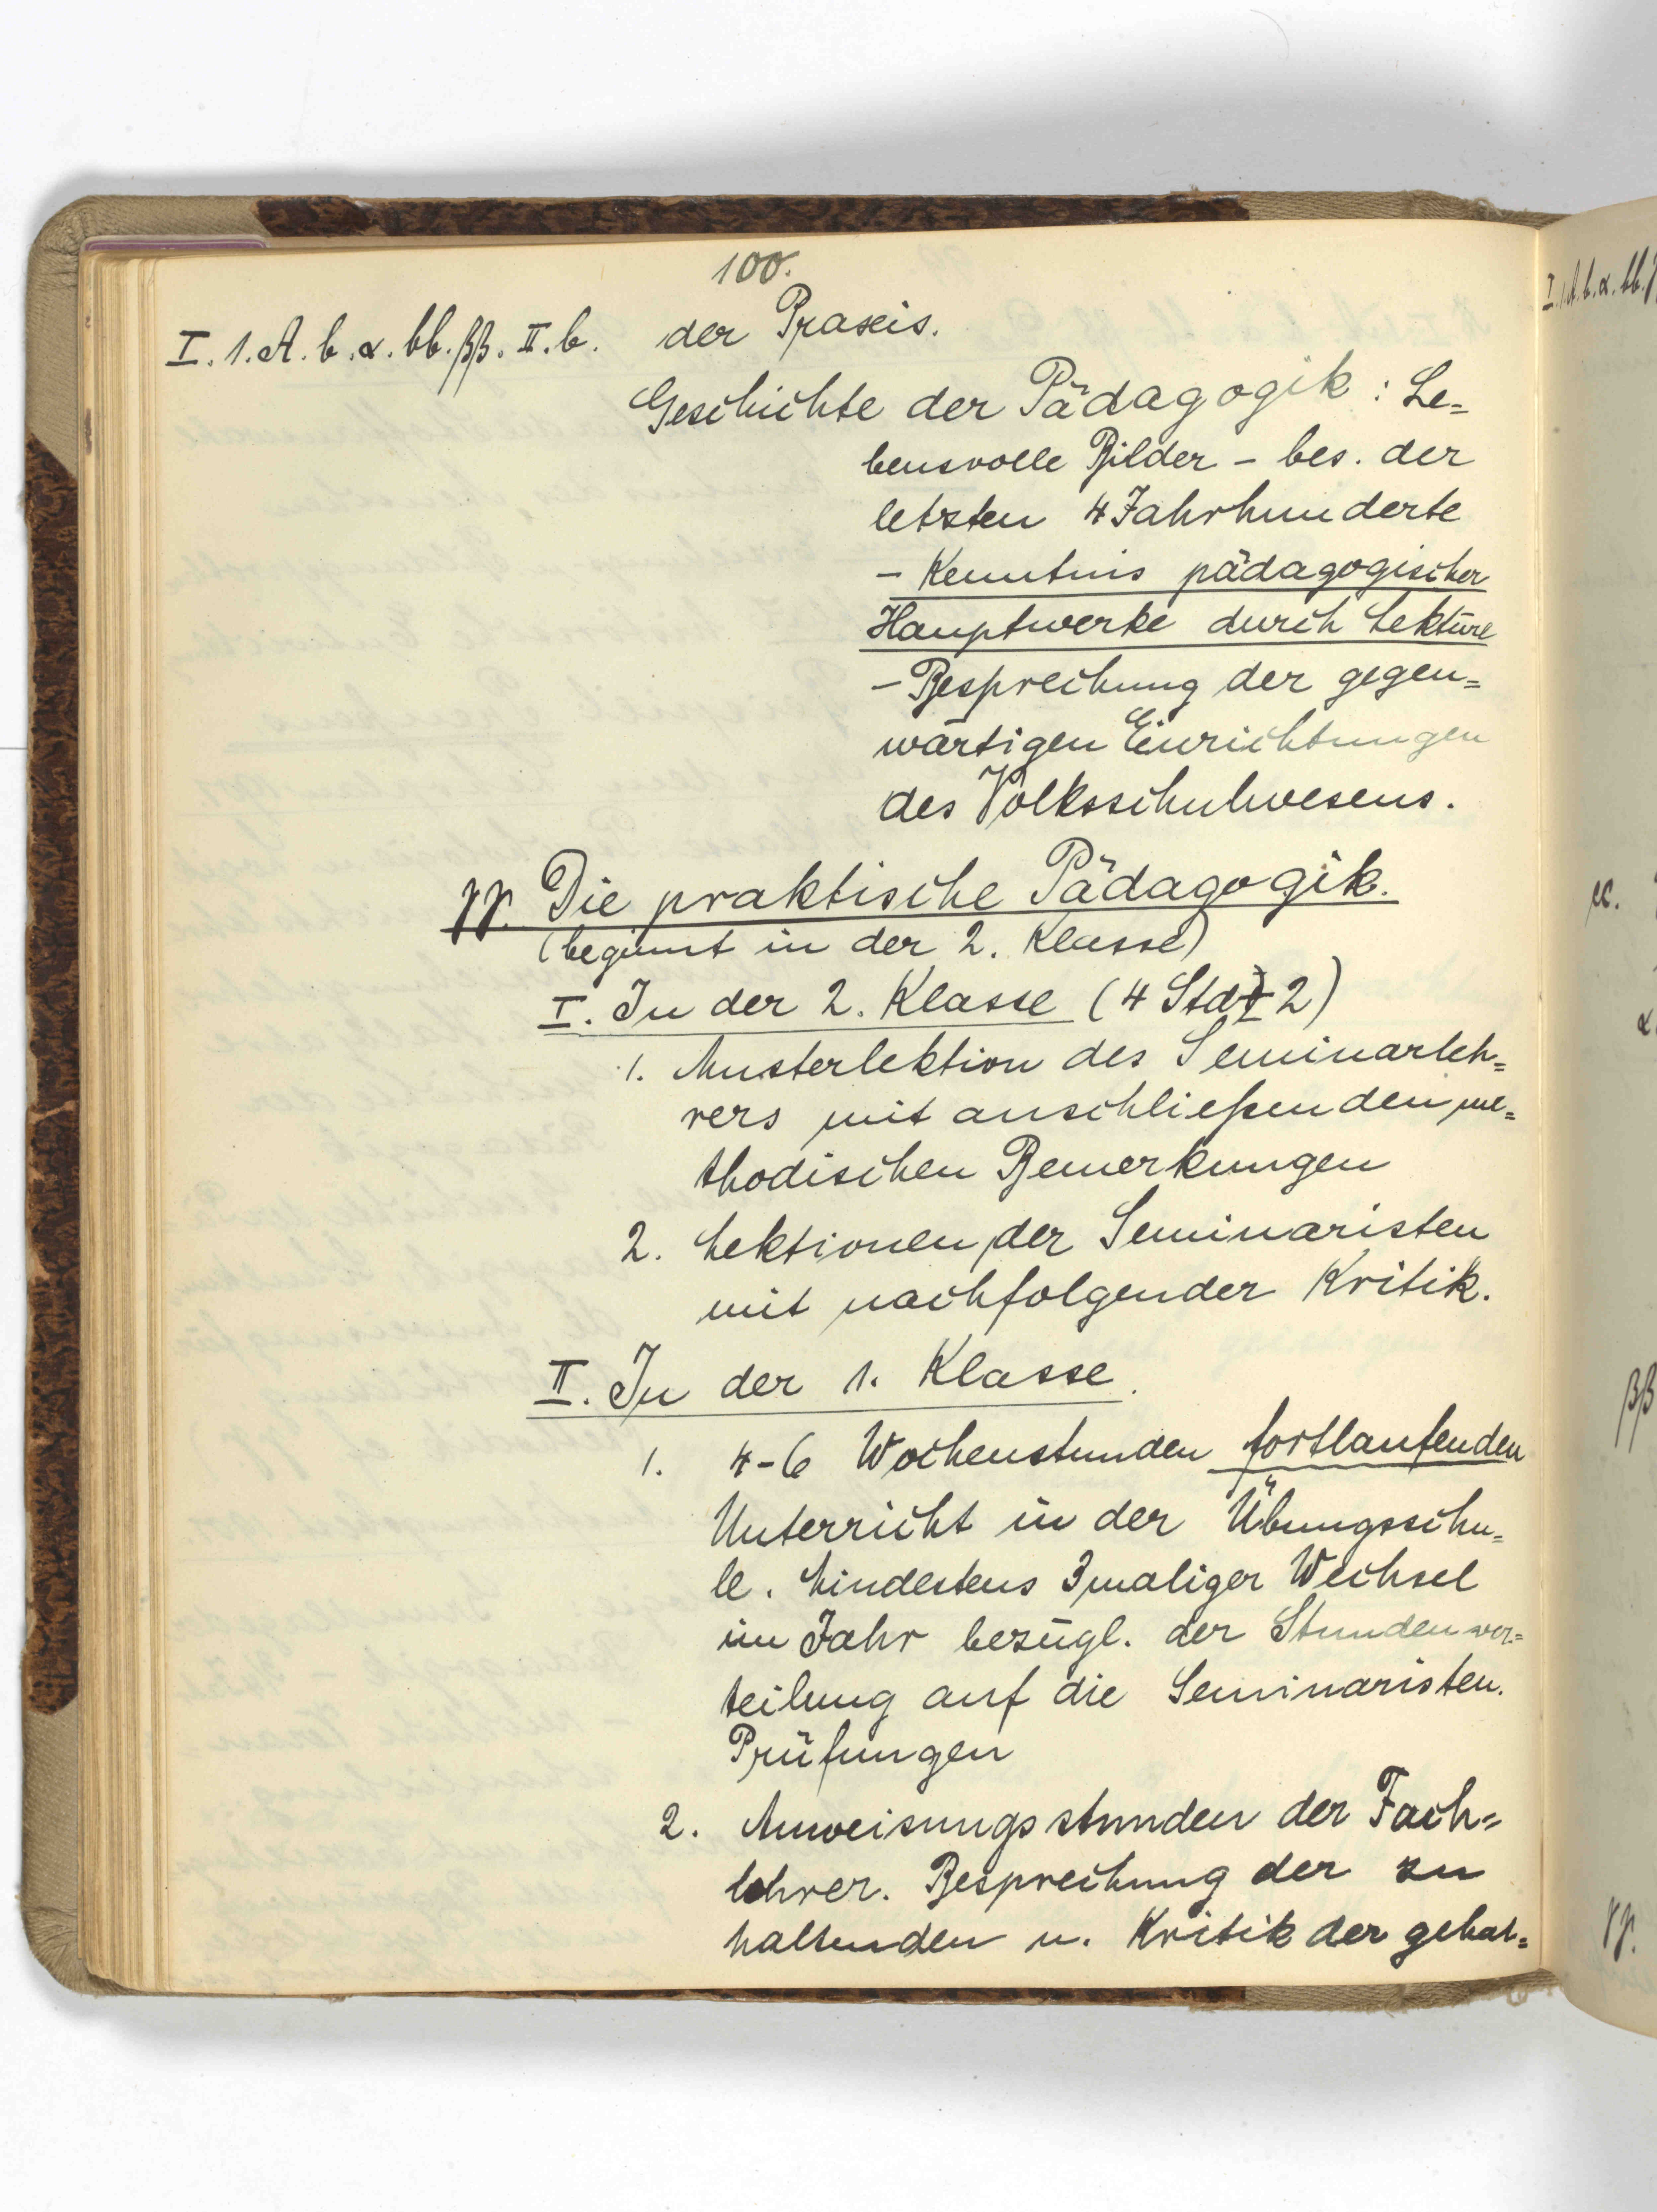 100.
I. 1. A. b. α. bb. ββ. II. b. der Praxis.
Geschichte der Pädagogik: Le=
bensvolle Bilder - bes. der
letzten 4 Jahrhunderte
- Kenntnis pädagogischer
Hauptwerke durch Lektüre
- Besprechung der gegen=
wärtigen Einrichtungen
des Volksschulwesens.
γγ. Die praktische Pädagogik.
(beginnt in der 2. Klasse)
I. In der 2. Klasse (4 Std 2)
1. Musterlektion des Seminarleh=
rers mit anschließenden me=
thodischen Bemerkungen
2. Lektionen der Seminaristen
mit nachfolgender Kritik.
II. In der 1. Klasse.
1. 4-6 Wochenstunden fortlaufenden
Unterricht in der Übungsschu=
le. Mindestens 3maliger Wechsel
im Jahr bezügl. der Stundenver=
teilung auf die Seminaristen.
Prüfungen
2. Anweisungsstunden der Fach=
lehrer. Besprechung der zu
haltenden u. Kritik der gehal=
I. 1. A. b. α. bb.
cc.
α.
ββ
γγ.